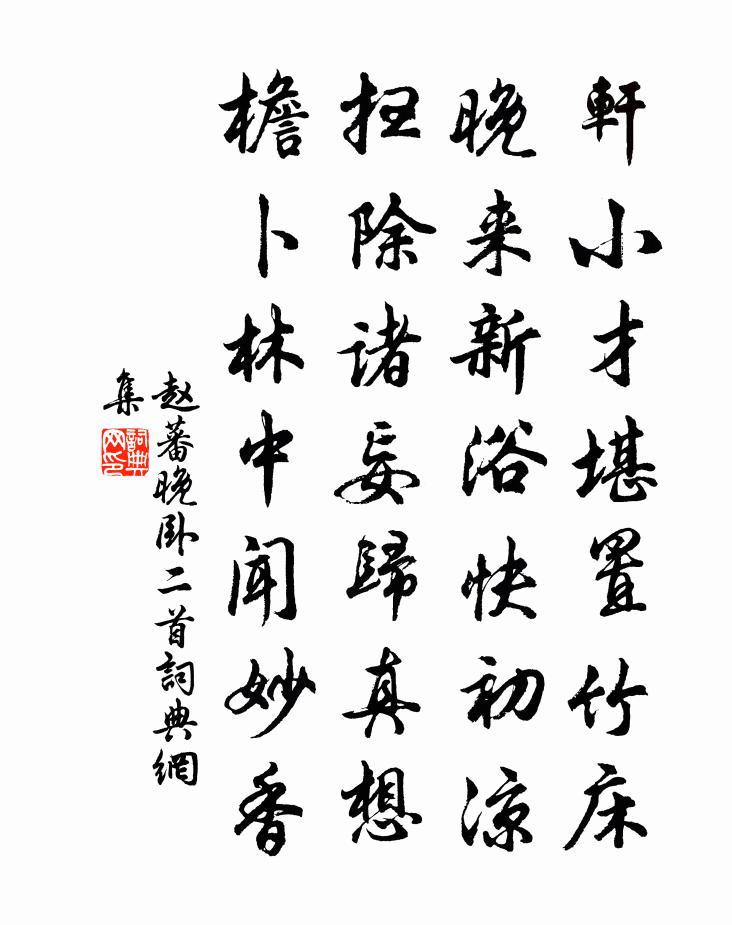 軒小才堪置竹床
晚来新浴快初凉
扫除諸妄歸真想
檐卜林中闻妙香
赵蕃晚卧二首詞典網
集
詞典
网印